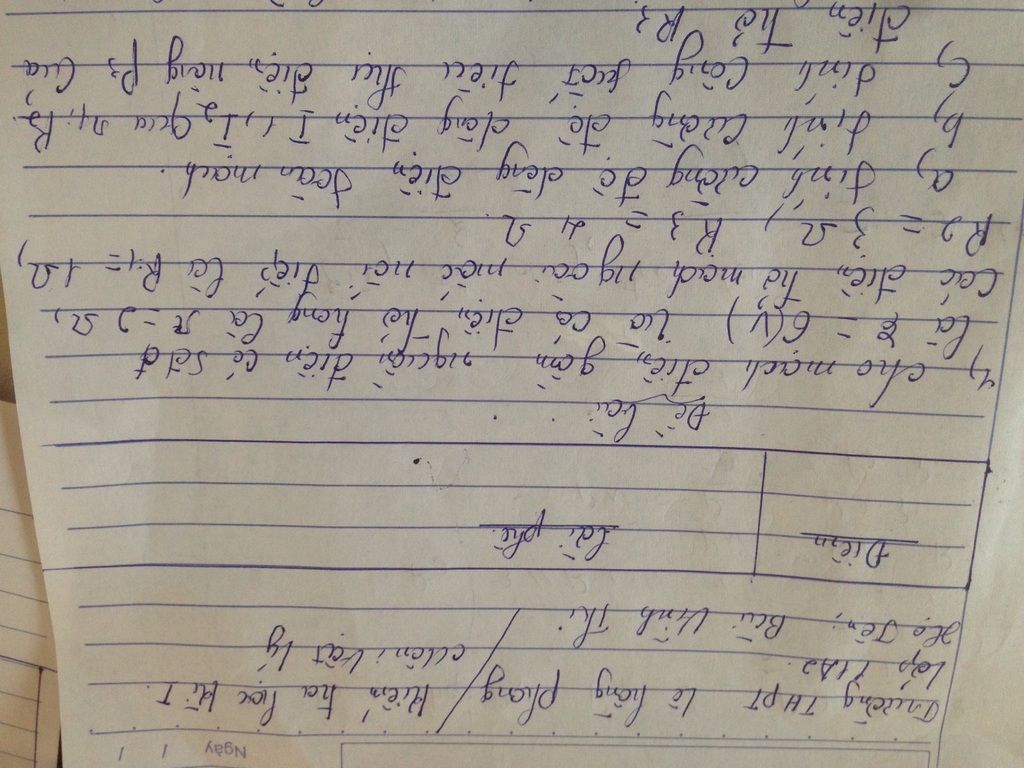 Ngày / /
Trường THPT Lê Hồng Phong / Kiểm tra học kì I.
Lớp 11A2. / Môn: Vật lý
Họ tên: Bùi Vinh Thi
Điểm | Lời phê.
Đề bài
1, cho mạch điện gồm nguồn điện có sđđ
là ξ = 6(V) và có điện trở trong là r = 2 Ω,
Các điện trở mạch ngoài mắc nối tiếp là R1 = 1Ω,
R2 = 3 Ω, R3 = 4 Ω.
a, tính cường độ dòng điện toàn mạch.
b, tính cường độ dòng điện I1, I2 qua R1, R2.
c, tính công suất tiêu thụ điện năng P3 của
điện trở R3